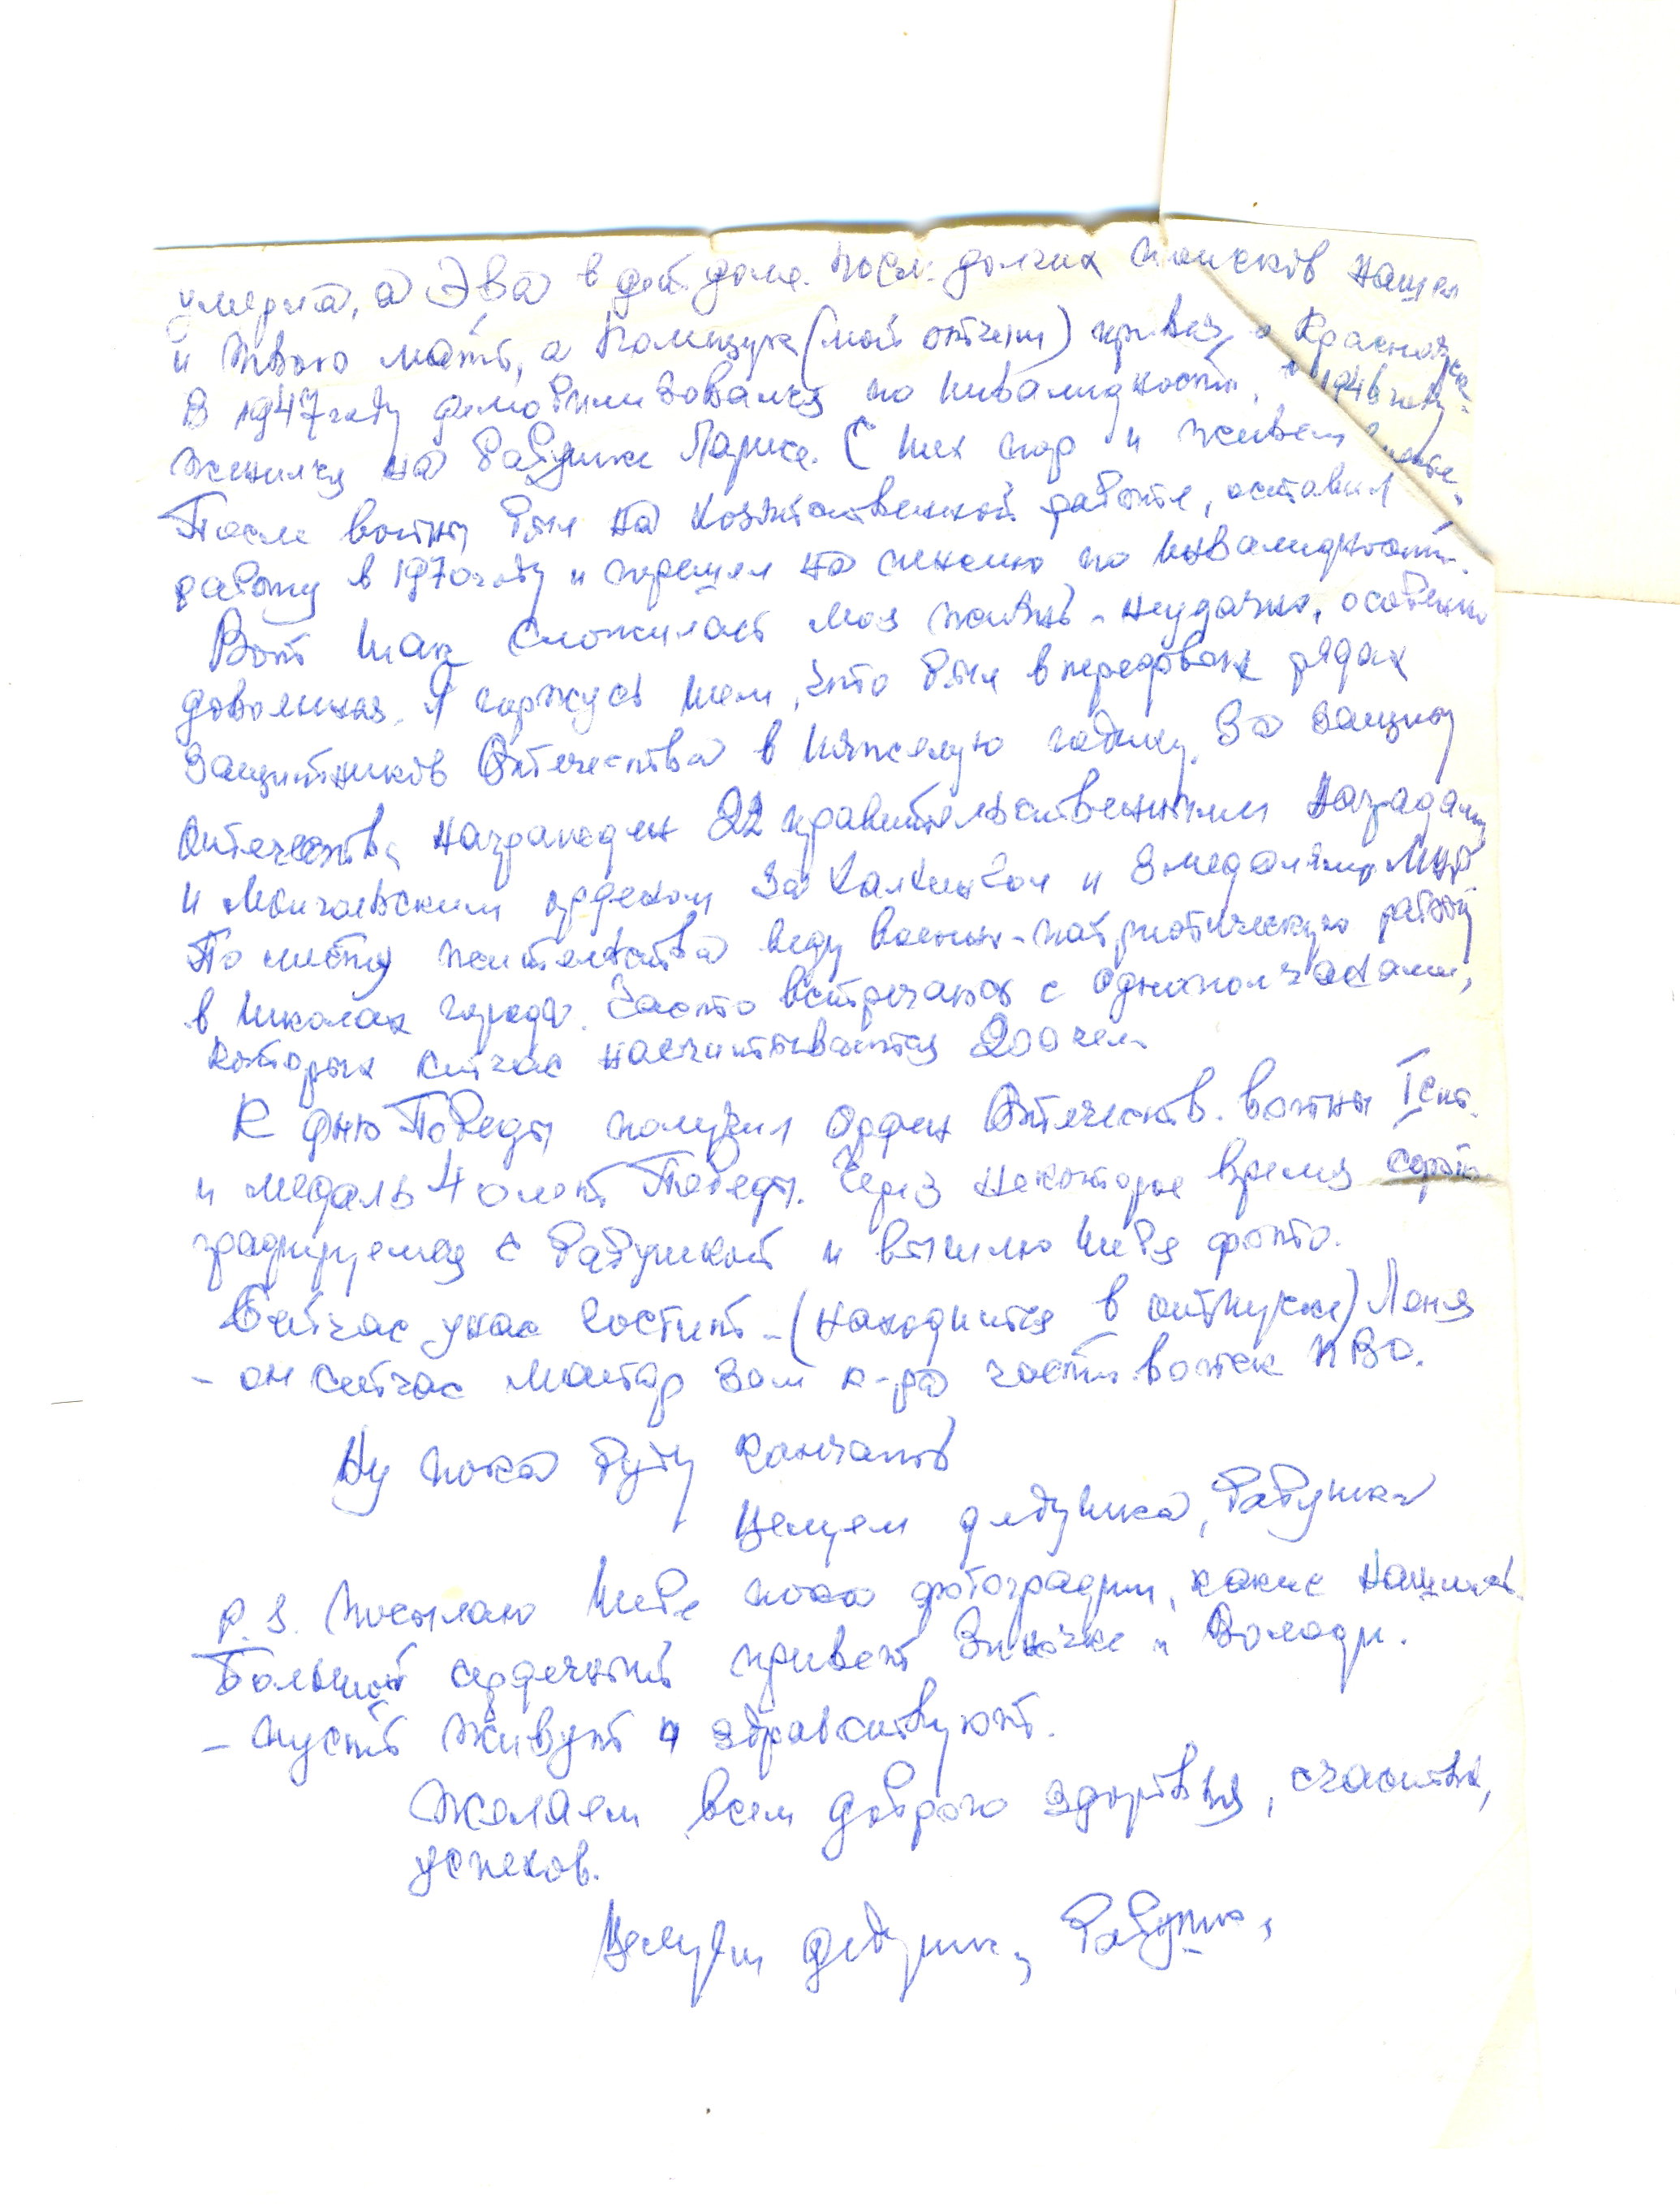 умерла, а Эва в дет. доме. После долгих поисков нашел
и твою мать, а Полищук (мой отчим) привез
В 1947 году демобилизовался по инвалидности, в 1946 году
женился на бабушке Ларисе. С тех пор и живем
После войны был на хозяйственной работе, оставил
работу в 1970 году и перешел на пенсию по инвалидности.
Вот так сложилась моя жизнь - неудачно, особенно
довоенная. Я горжусь тем, что был в передовых рядах
защитников Отечества в тяжелую годину. За защиту
Отечества награжден 22 правительственными наградами
и Монгольским орденом за Халхин Гол и 3 медалями МНР
По месту жительства веду военно-патриотическую работу
в школах города. Часто встречаюсь с однополчанами,
которых сейчас насчитывается 200 чел.
К дню Победы получил Орден Отечеств. войны I степ.
и медаль 40 лет Победы. Через некоторое время сфото
графируемся с бабушкой и вышлю тебе фото.
Сейчас у нас гостит - (находится в отпуске) Лёня
- он сейчас майор зам к-ра части войск ПВО.
Ну пока буду кончать
Целуем дедушка, бабушка
P.S. Посылаю тебе пока фотографии, какие нашлись.
Большой сердечный привет Зиночке и Володи.
- пусть живут и здравствуют.
Желаем всем доброго здоровья, счастья,
успехов.
Целуем дедушка, бабушка,